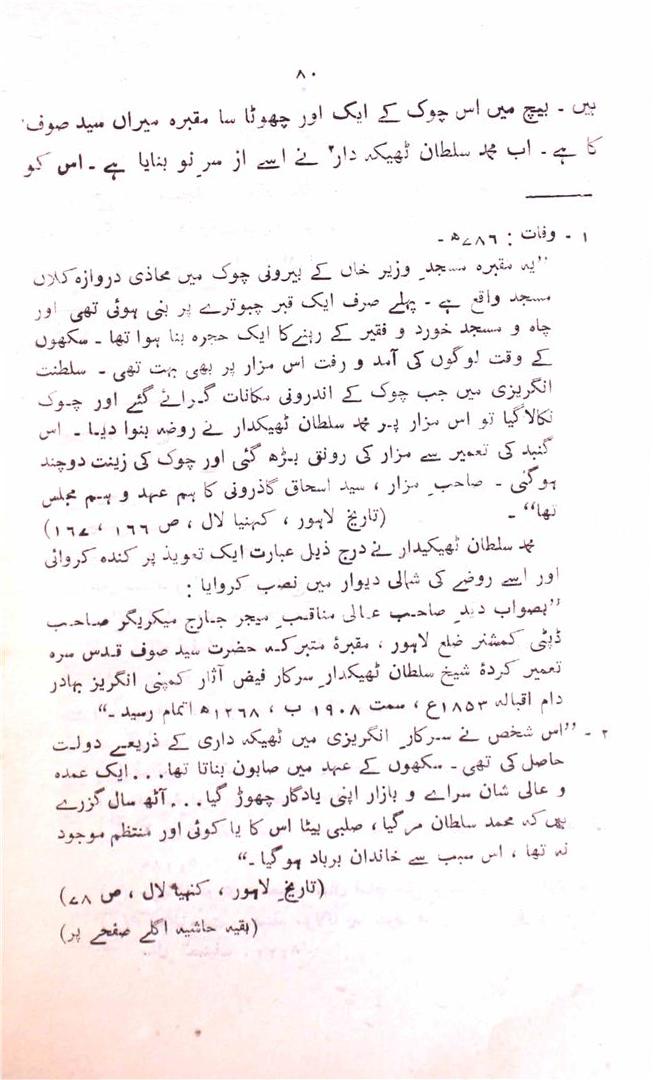 ۸۰
ہیں ۔ بیچ میں اس چوک کے ایک اور چھوٹا سا مقبرہ میراں سید صوف'
کا ہے ۔ اب محمد سلطان ٹھیکہ دار۲ نے اسے از سرِ نو بنایا ہے ۔ اس کو
۱ ۔ وفات : ۷۸۶ھ ۔
”یہ مقبرہ مسجدِ وزیر خاں کے بیرونی چوک میں محاذی دروازہ کلاں
مسجد واقع ہے ۔ پہلے صرف ایک قبر چبوترے پر بنی ہوئی تھی اور
چاہ و مسجد خورد و فقیر کے رہنے کا ایک حجرہ بنا ہوا تھا ۔ سکھوں
کے وقت لوگوں کی آمد و رفت اس مزار پر بھی بہت تھی ۔ سلطنت
انگریزی میں جب چوک کے اندرونی مکانات گرائے گئے اور چوک
نکالا گیا تو اس مزار پر محمد سلطان ٹھیکدار نے روضہ بنوا دیا ۔ اس
گنبد کی تعمیر سے مزار کی رونق بڑھ گئی اور چوک کی زینت دوچند
ہوگئی ۔ صاحبِ مزار ، سید اسحاق گاذرونی کا ہم عہد و ہم مجلس
تھا“ ۔ (تاریخ لاہور ، کہنیا لال ، ص ۱۶۶ ، ۱۶۷)
محمد سلطان ٹھیکیدار نے درج ذیل عبارت ایک تعویذ پر کندہ کروائی
اور اسے روضے کی شمالی دیوار میں نصب کروایا :
”بصواب دیدِ صاحب عالی مناقبِ میجر جارج میکریگر صاحب
ڈپٹی کمشنر ضلع لاہور ، مقبرۂ متبرکہ حضرت سید صوف قدس سرہ
تعمیر کردۂ شیخ سلطان ٹھیکدارِ سرکار فیض آثار کمپنی انگریز بہادر
دام اقبالہ ۱۸۵۳ع ، سمت ۱۹۰۸ ب ، ۱۲۶۸ھ اتمام رسید ۔“
۲ ۔ ”اس شخص نے سرکارِ انگریزی میں ٹھیکہ داری کے ذریعے دولت
حاصل کی تھی ۔ سکھوں کے عہد میں صابون بناتا تھا . . . ایک عمدہ
و عالی شان سراے و بازار اپنی یادگار چھوڑ گیا . . . آٹھ سال گزرے
ہیں کہ محمد سلطان مرگیا ، صلبی بیٹا اس کا یا کوئی اور منتظم موجود
نہ تھا ، اس سبب سے خاندان برباد ہوگیا ۔“
(تاریخِ لاہور ، کنہیا لال ، ص ۷۸)
(بقیہ حاشیہ اگلے صفحے پر)